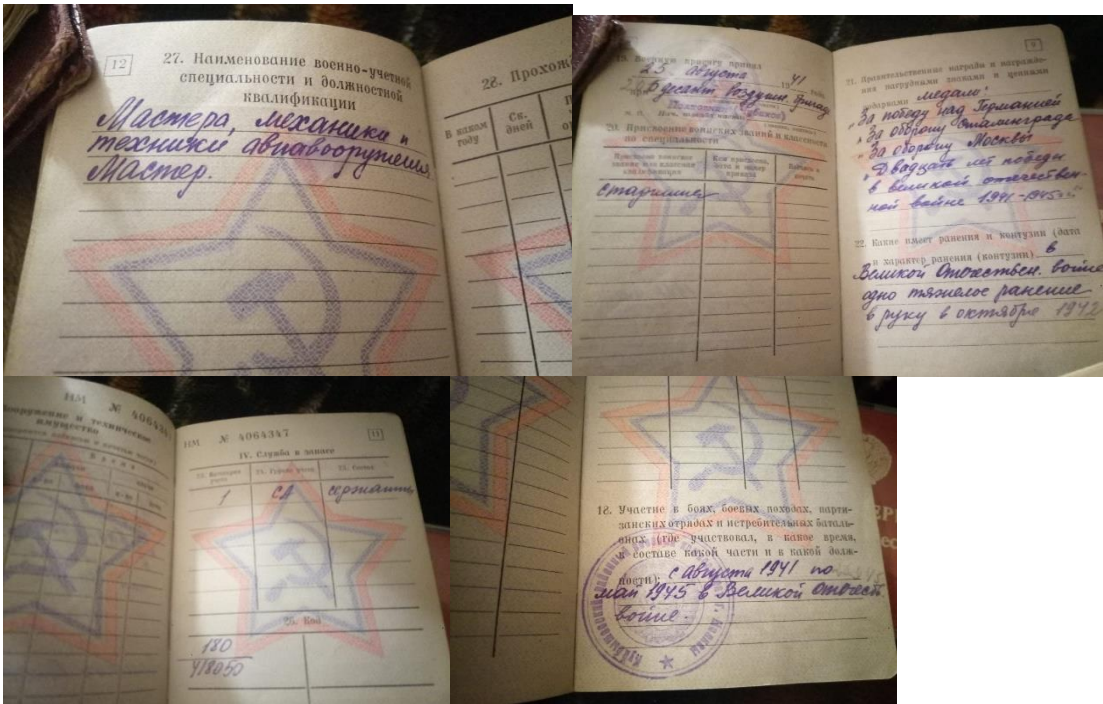 12
27. Наименование военно-учетной
специальности и должностной
квалификации
Мастера, механики и
техники авиавооружения
Мастер.
28.
В каком
году
Ск.
дней
23 августа 41
20. Присвоение воинских званий и классности
по специальности
старшина
9
21. Правительственные награды
медали:
"За победу над Германией
"За оборону Сталинграда
"За оборону Москвы
"Двадцать лет победы
в великой отечествен-
ной войне 1941-1945гг"
22. Какие имеет ранения и контузии (дата
и характер ранения (контузии) в
Великой Отечествен. войне
одно тяжелое ранение
в руку в октябре 1942
НМ № 406434
вооружение и техническое
имущество
НМ № 4064347
11
IV. Служба в запасе
25. Состав
1
СА
сержантск
26. Код
180
418050
18. Участие в боях, боевых походах, парти-
занских отрядах и истребительных баталь-
онах (где участвовал, в какое время,
в составе какой части и в какой долж-
ности). с Августа 1941 по
май 1945 в Великой Отечеств.
войне.